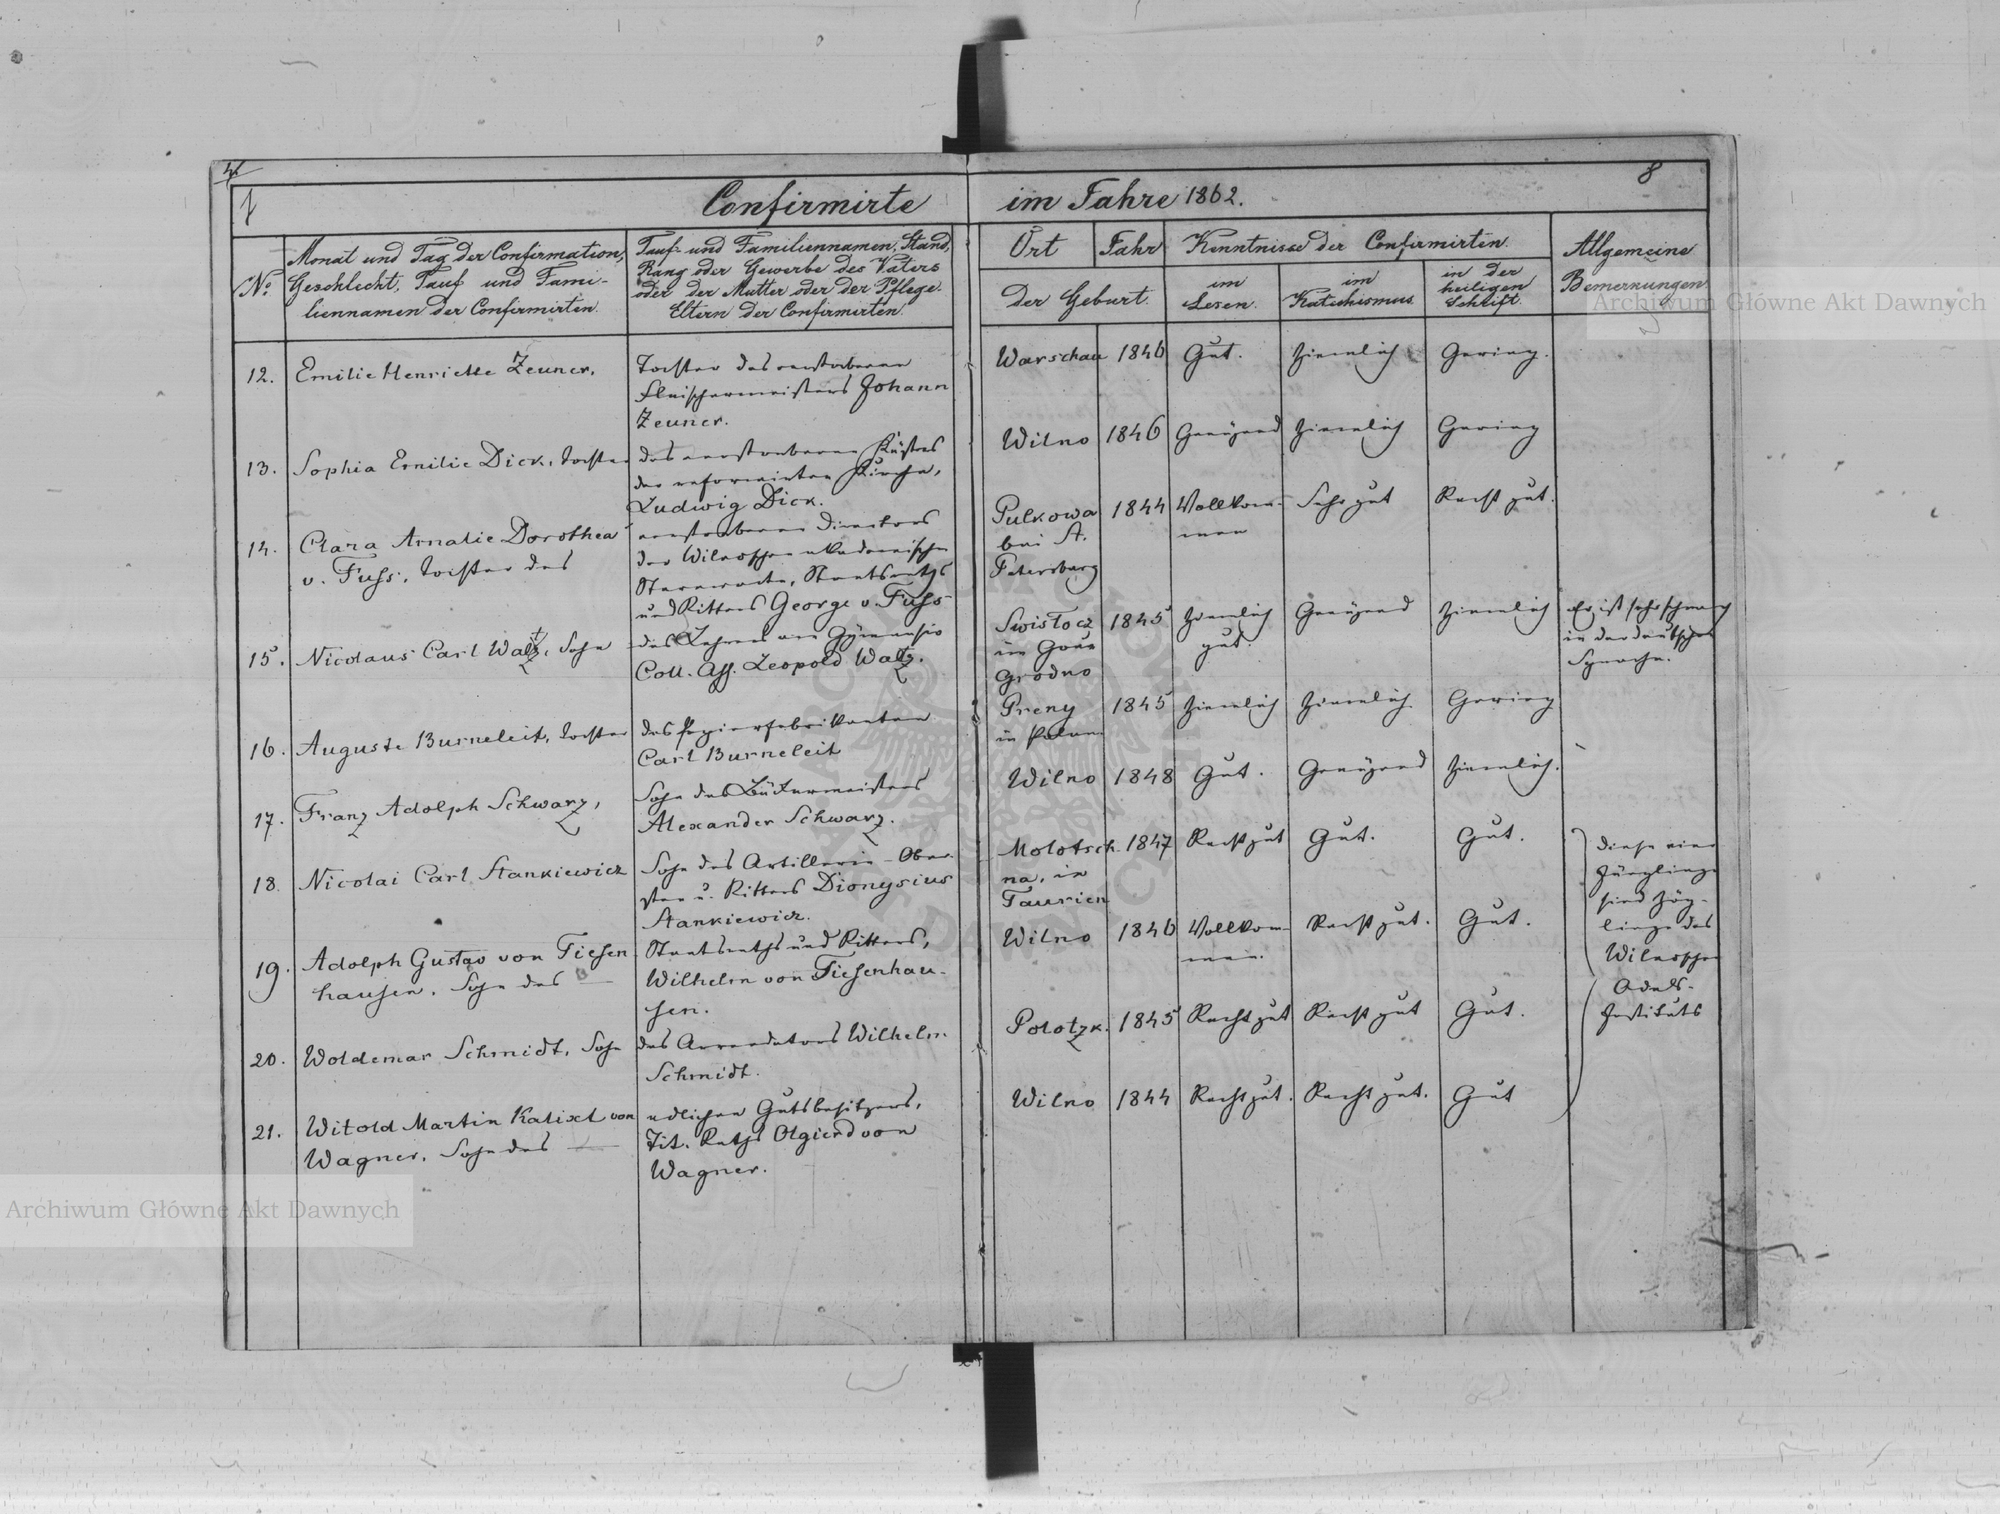 4
8
1
Confirmirte im Jahre 1862.
No
Monat und Tag der Confirmation,
Geschlecht, Tauf und Fami-
liennamen der Confirmirten.
Tauf- und Familiennamen, Stand,
Rang oder Gewerbe des Vaters
oder der Mutter oder der Pflege-
Eltern der Confirmirten.
Ort
Jahr
der Geburt.
Kenntnisse der Confirmirten.
im
Lesen.
im
Katechismus
in der
heiligen
Schrift.
Allgemeine
Bemerkungen
12.
Emilie Henriette Zeuner,
Tochter des verstorbenen
Fleischermeisters Johann
Zeuner.
Warschau
1846
Gut.
Ziemlich
Gering.
13.
Sophia Emilie Dick, Tochter
des verstorbenen Küsters
der reformirten Kirche,
Ludwig Dick.
Wilno
1846
Genügend
Ziemlich
Gering
14.
Clara Amalie Dorothea
v. Fuss, Tochter des
verstorbenen Directors
der Wilnoschen akademischen
Sternwarte, Staatsraths
und Ritters George v. Fuss
Pulkowa
bei St.
Petersburg
1844
Vollkom-
men
Sehr gut
Recht gut.
15.
Nicolaus Carl Waltz, Sohn
des Lehrers am Gymnasio
Coll. Ass. Leopold Waltz.
Swistocz
im Gouv
Grodno
1845
Ziemlich
gut.
Genügend
Ziemlich
Er ist sehr schwach
in der deutschen
Sprache.
16.
Auguste Burneleit, Tochter
des Papierfabrikanten
Carl Burneleit
Preny
in Polen
1845
Ziemlich
Ziemlich
Gering
17.
Franz Adolph Schwarz,
Sohn des Bäckermeisters
Alexander Schwarz.
Wilno
1848
Gut.
Genügend
Ziemlich.
18.
Nicolai Carl Stankiewicz
Sohn des Artillerie-Ober-
sten u. Ritters Dionysius
Stankiewicz.
Molotsch
na, in
Taurien
1847
Recht gut
Gut.
Gut.
Diese vier
Jünglinge
sind Zög-
linge des
Wilnoschen
Adels-
Instituts
19.
Adolph Gustav von Tiesen
hausen, Sohn des
Staatsraths und Ritters,
Wilhelm von Tiesenhau-
sen.
Wilno
1846
Vollkom-
men.
Recht gut.
Gut.
20.
Woldemar Schmidt, Sohn
des Arrendators Wilhelm
Schmidt.
Polotzk.
1845
Recht gut
Recht gut
Gut.
21.
Witold Martin Kalixt von
Wagner, Sohn des
adlichen Gutsbesitzers,
Tit. Raths Olgierd von
Wagner.
Wilno
1844
Recht gut.
Recht gut.
Gut
Archiwum Główne Akt Dawnych
Archiwum Główne Akt Dawnych